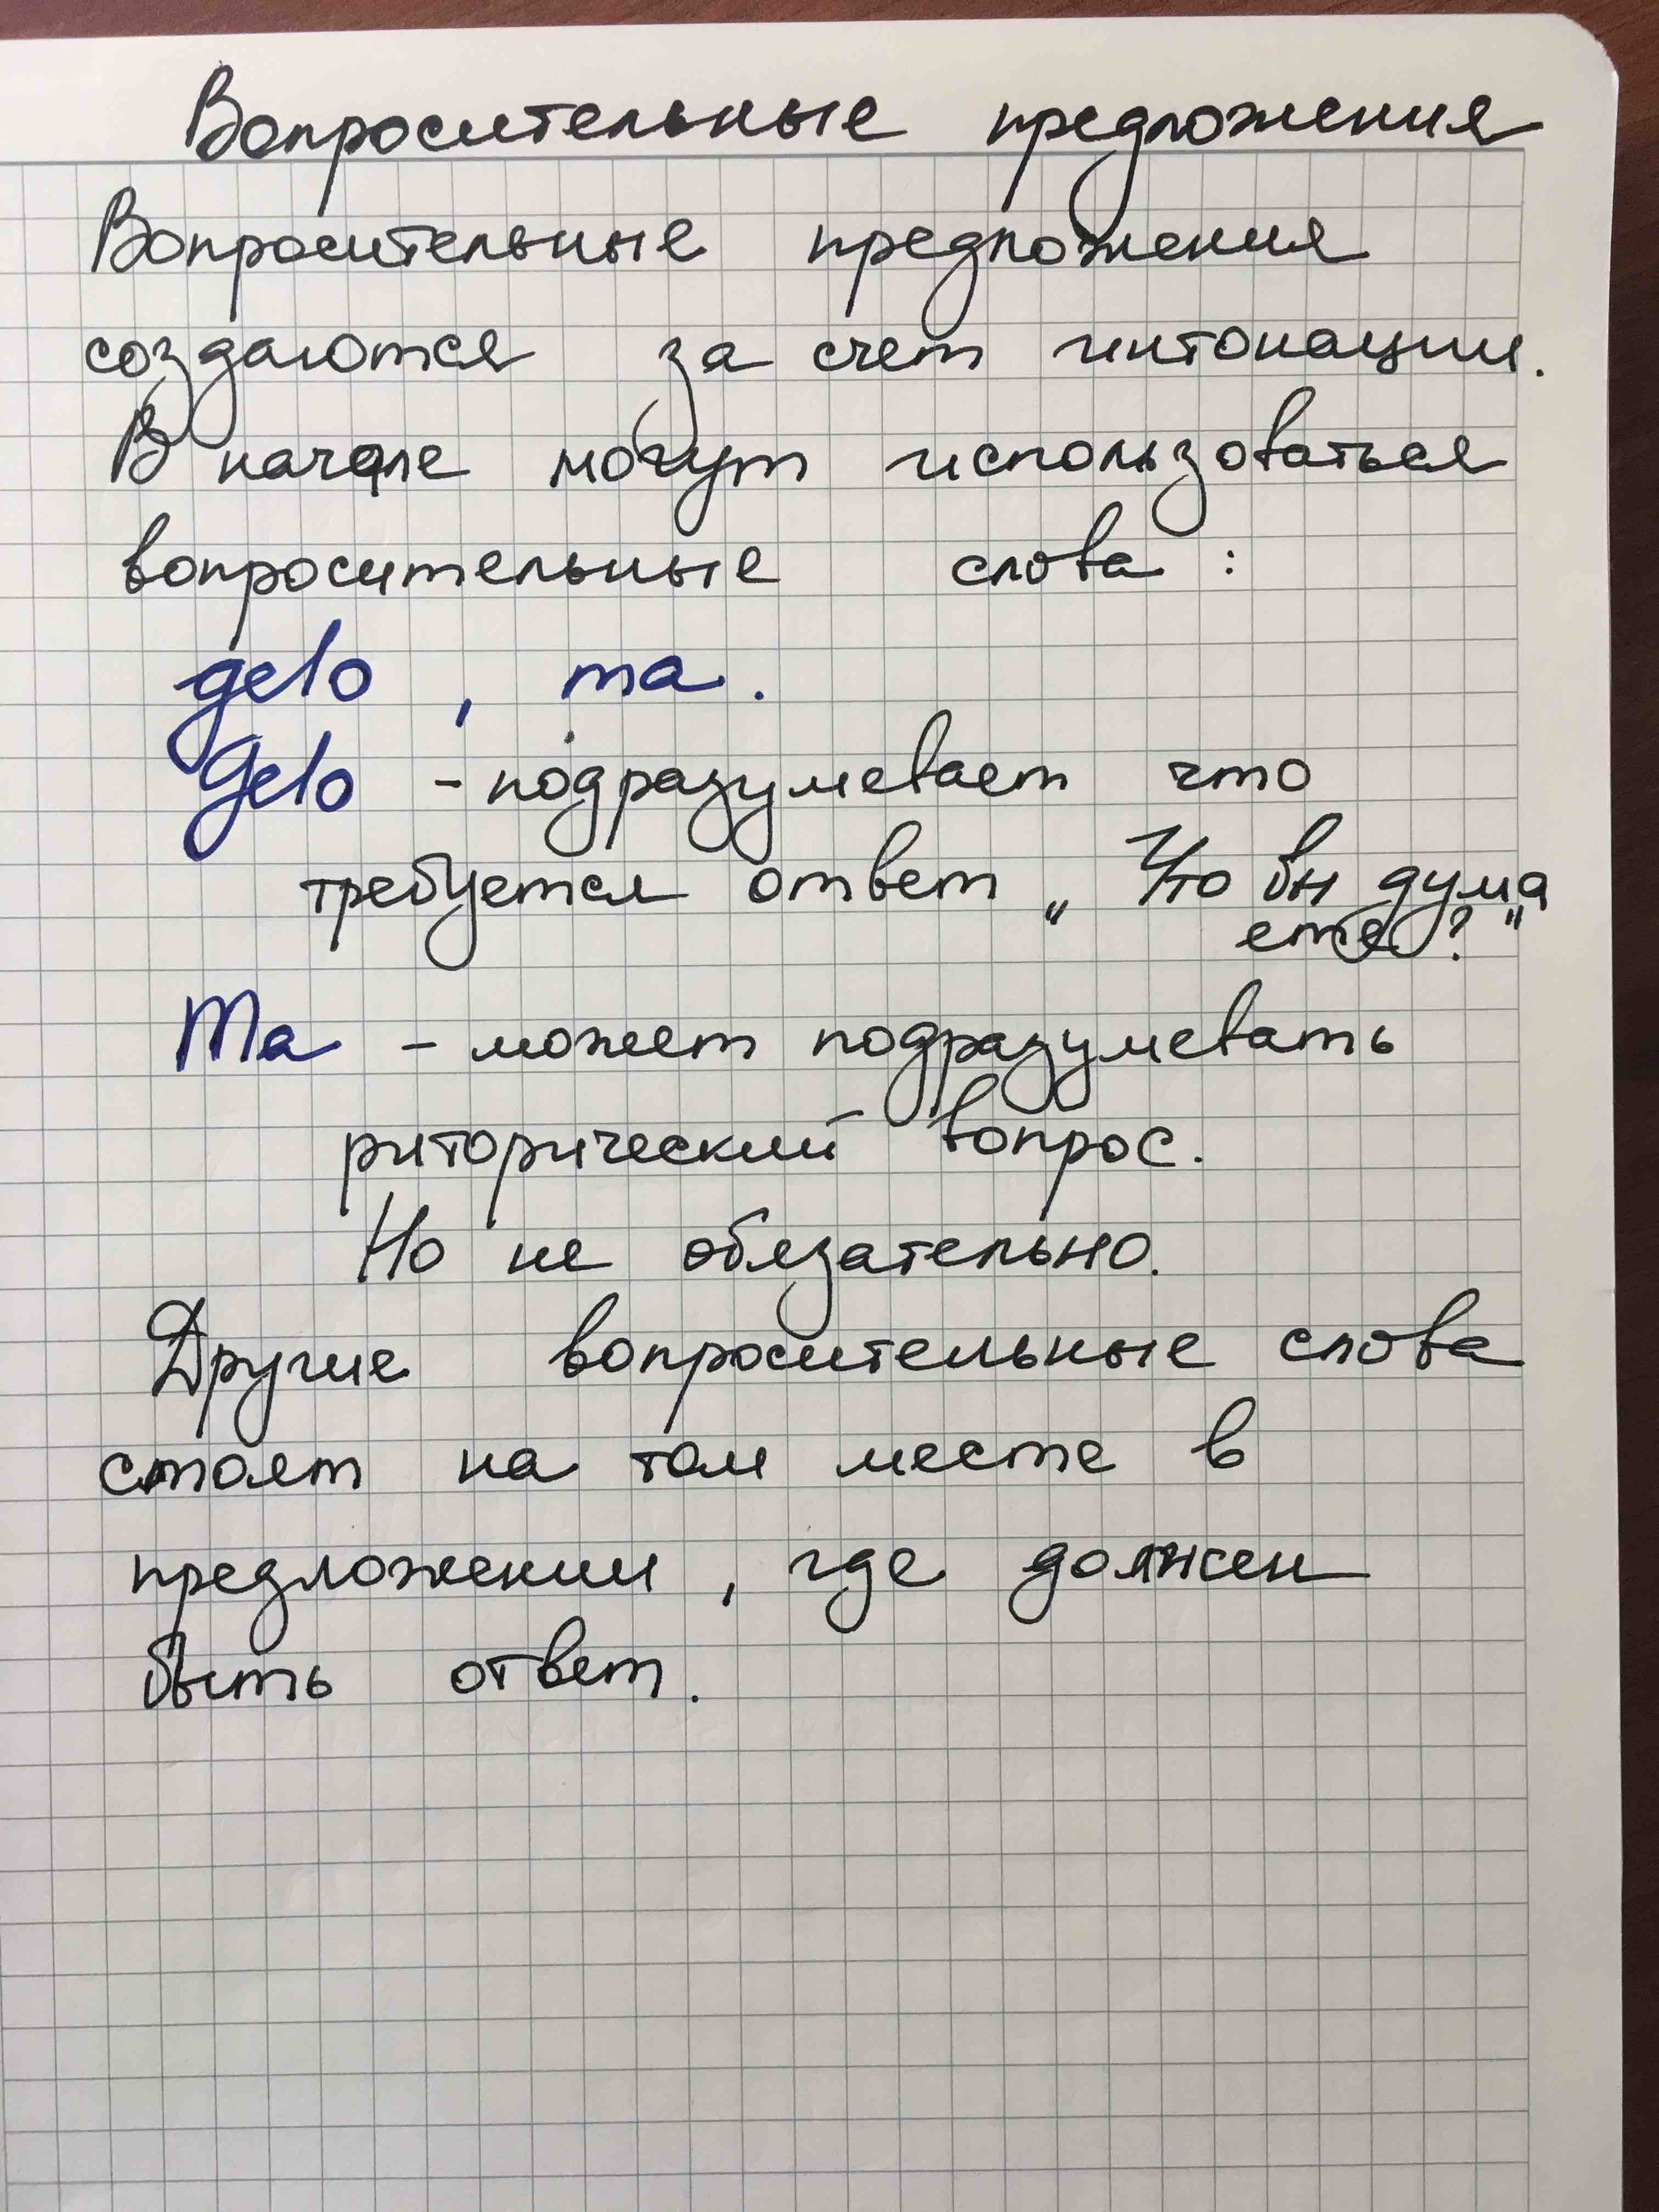 Вопросительные предложения
Вопросительные предложения
создаются за счет интонации.
В начале могут использоваться
вопросительные слова :
gelo , ma .
Gelo - подразумевает что
требуется ответ „ Что вы дума
ете? "
Ma - может подразумевать
риторический вопрос.
Но не обязательно.
Другие вопросительные слова
стоят на том месте в
предложении , где должен
быть ответ .